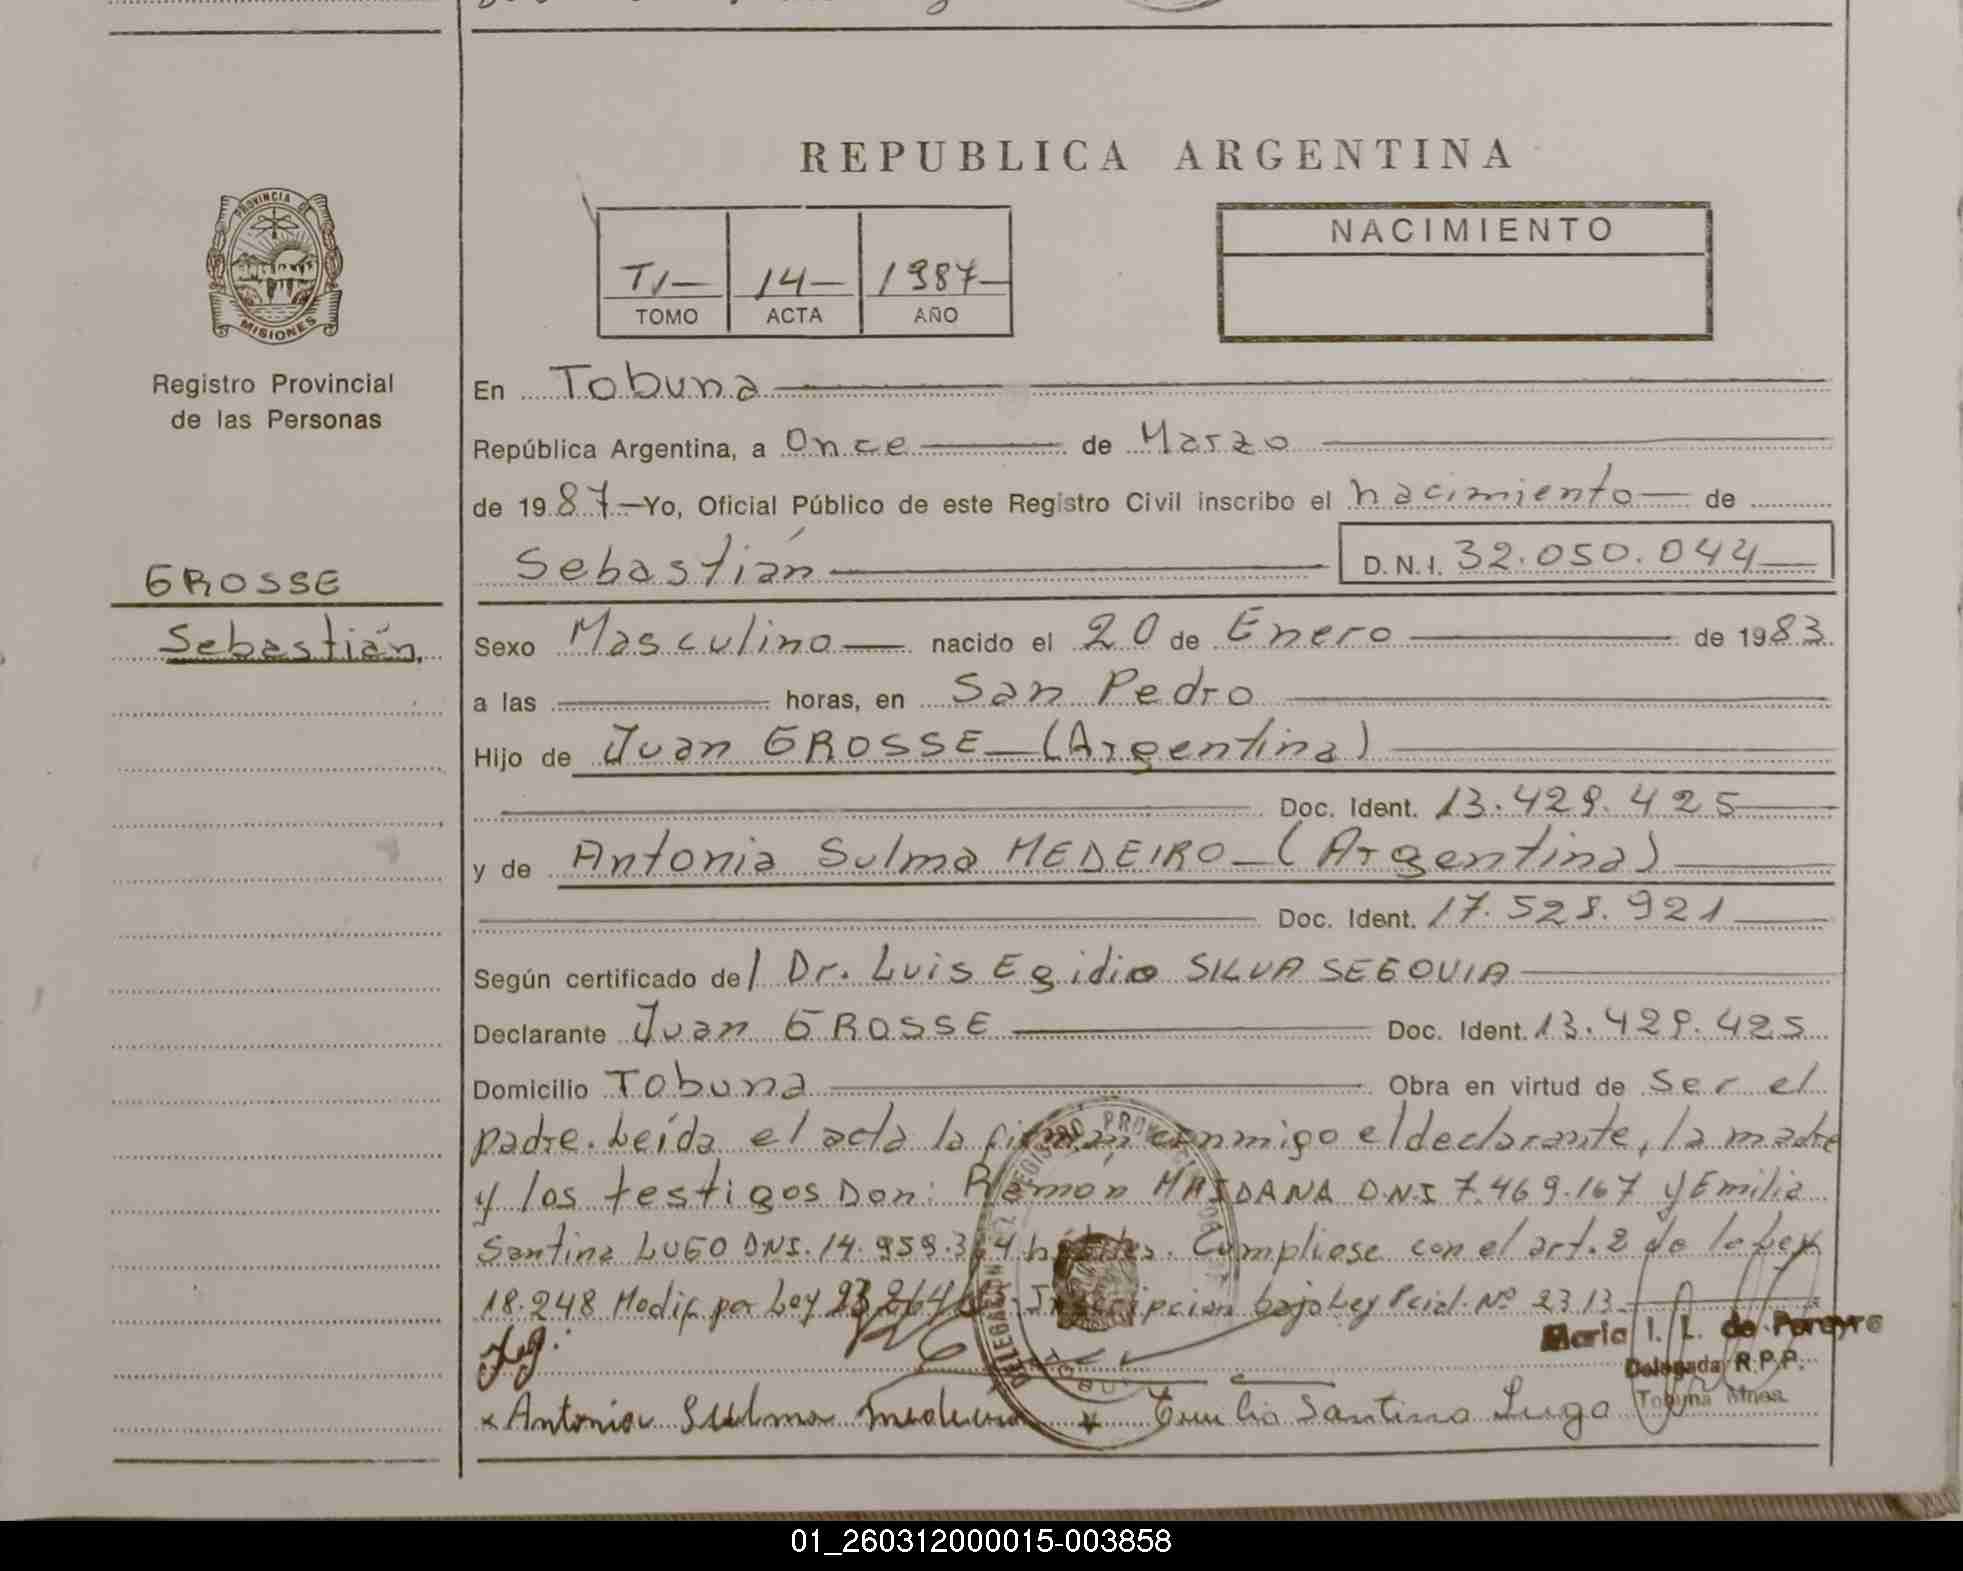 REPUBLICA ARGENTINA
PROVINCIA DE
MISIONES
Registro Provincial
de las Personas
NACIMIENTO
T1 14 1987
TOMO ACTA AÑO
En Tobuna
República Argentina, a Once de Marzo
de 1987 Yo, Oficial Público de este Registro Civil inscribo el nacimiento de
Sebastián D.N.I. 32.050.044
GROSSE
Sebastián.
Sexo Masculino nacido el 20 de Enero de 1983
a las horas, en San Pedro
Hijo de Juan GROSSE (Argentina)
Doc. Ident. 13.429.425
y de Antonia Sulma MEDEIRO (Argentina)
Doc. Ident. 17.528.921
Según certificado del Dr. Luis Egidio SILVA SEGOVIA
Declarante Juan GROSSE Doc. Ident. 13.429.425
Domicilio Tobuna Obra en virtud de Ser el
padre. Leída el acta la firman conmigo el declarante, la madre
y los testigos Don: Ramón MAIDANA D.N.I 7.469.167 y Emilia
Santina LUGO DNI. 14.959.364 hábiles. Cumpliose con el art. 2 de la Ley
18.248 Modif por Ley 23.264 Inscripcion bajo Ley Pcial. Nº 2313
Maria I. L. de Pereyra
Delegada R.P.P.
Tobuna Mnes.
x Antonia Sulma Medeiro x Emilia Santina Lugo
01_260312000015-003858